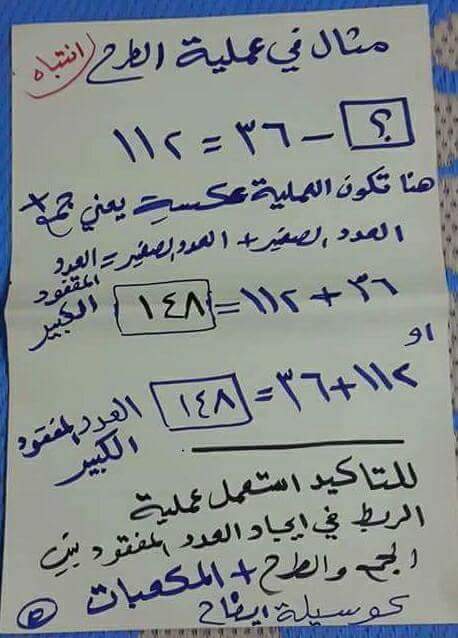 مثال في عملية الطرح
انتباه
؟ − ٣٦ = ١١٢
هنا تكون العملية عكسية يعني جمع +
العدد الصغير + العدد الصغير = العدد المفقود الكبير
٣٦ + ١١٢ = ١٤٨
او
١١٢ + ٣٦ = ١٤٨ العدد المفقود
الكبير
للتاكيد استعمل عملية
الربط في ايجاد العدد المفقود بين
الجمع والطرح + المكعبات
كوسيلة ايضاح